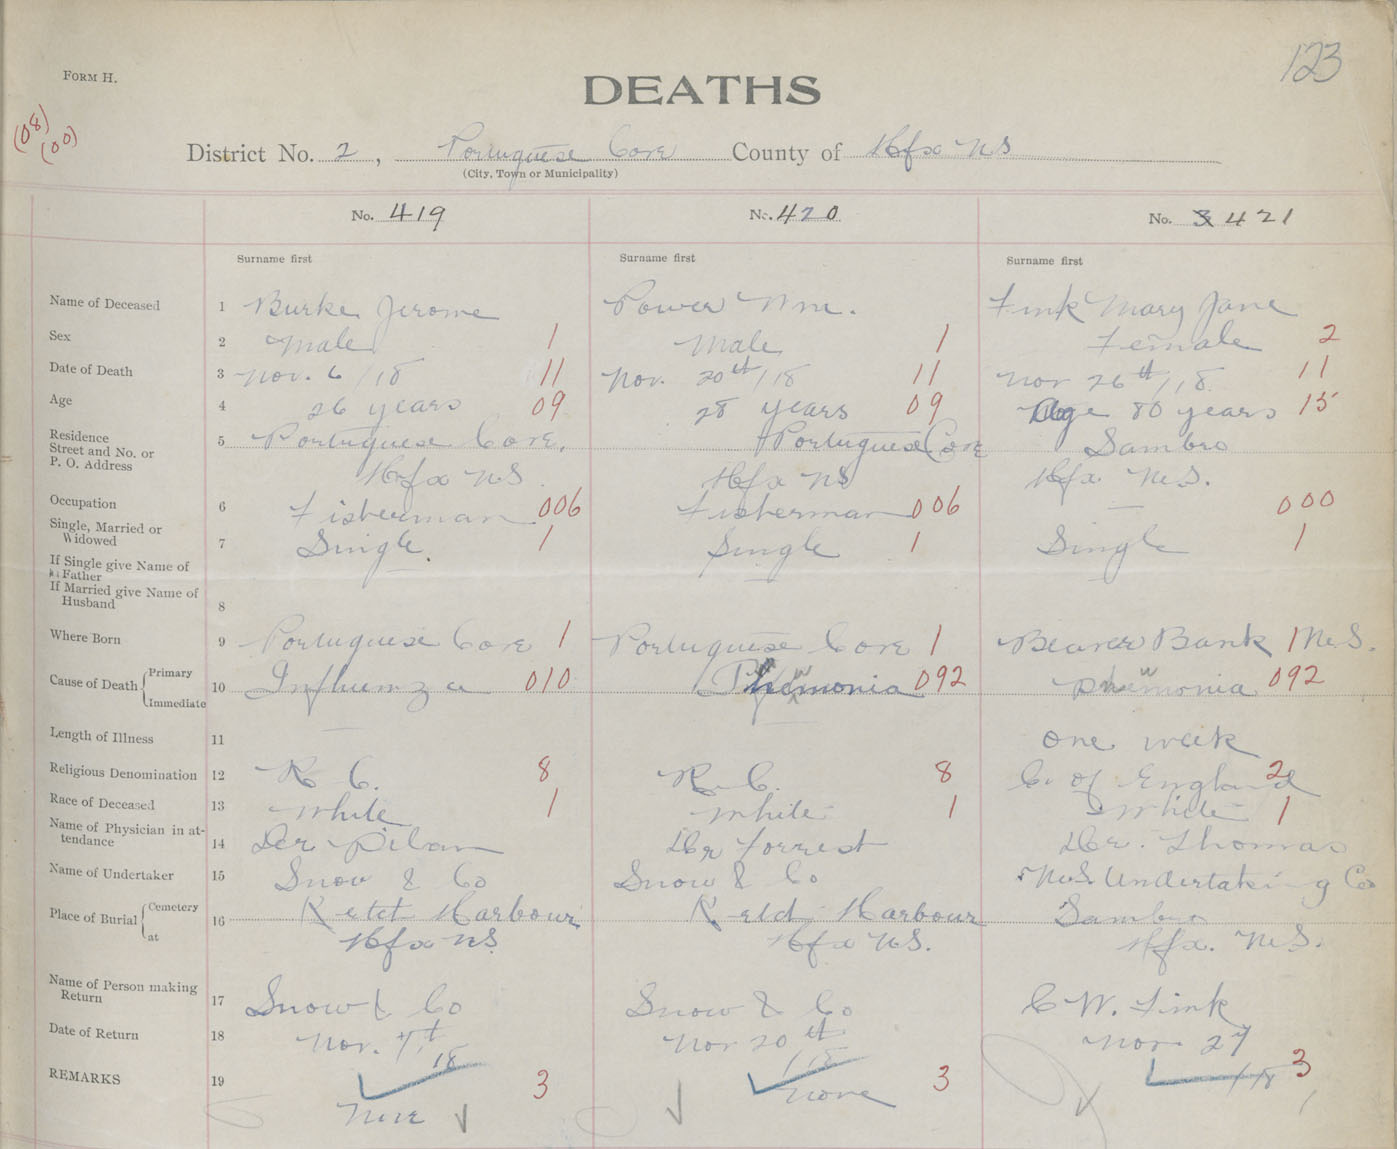 FORM H.
123
DEATHS
(08)
(00)
District No. 2, Portuguese Cove County of Hfx NS
(City, Town or Municipality)
No. 419 No. 420 No. 3 421
Surname first Surname first Surname first
Name of Deceased 1 Burke Jerome Power Wm. Fink Mary Jane
Sex 2 Male 1 Male 1 Female 2
Date of Death 3 Nov. 6/18 11 Nov. 20th/18 11 Nov 26th/18 11
Age 4 26 years 09 28 years 09 Age 80 years 15
Residence
Street and No. or
P. O. Address
5 Portuguese Cove, Portuguese Cove Sambro
Hfx NS Hfx NS Hfx. N.S.
Occupation 6 Fisherman 006 Fisherman 006 — 000
Single, Married or
Widowed
7 Single. 1 Single 1 Single 1
If Single give Name of
Father
If Married give Name of
Husband
8
Where Born 9 Portuguese Cove 1 Portuguese Cove 1 Beaver Bank 1 N.S.
Cause of Death { Primary
Immediate
10 Influenza 010 092 092
Length of Illness 11 one week
Religious Denomination 12 R C. 8 R. C. 8 C. of England 2
Race of Deceased 13 White 1 White 1 White 1
Name of Physician in at-
tendance
14 Dr Dr Forrest Dr. Thomas
Name of Undertaker 15 Snow & Co Snow & Co N.S. Undertaking Co
Place of Burial { Cemetery
at
16 Harbour Harbour Sambro
Hfx NS Hfx N.S. Hfx. N.S.
Name of Person making
Return
17 Snow & Co Snow & Co C W. Fink
Date of Return 18 Nov. 7th Nov 20th Nov 27
18 /18 /18
REMARKS 19 3 3 3
None None